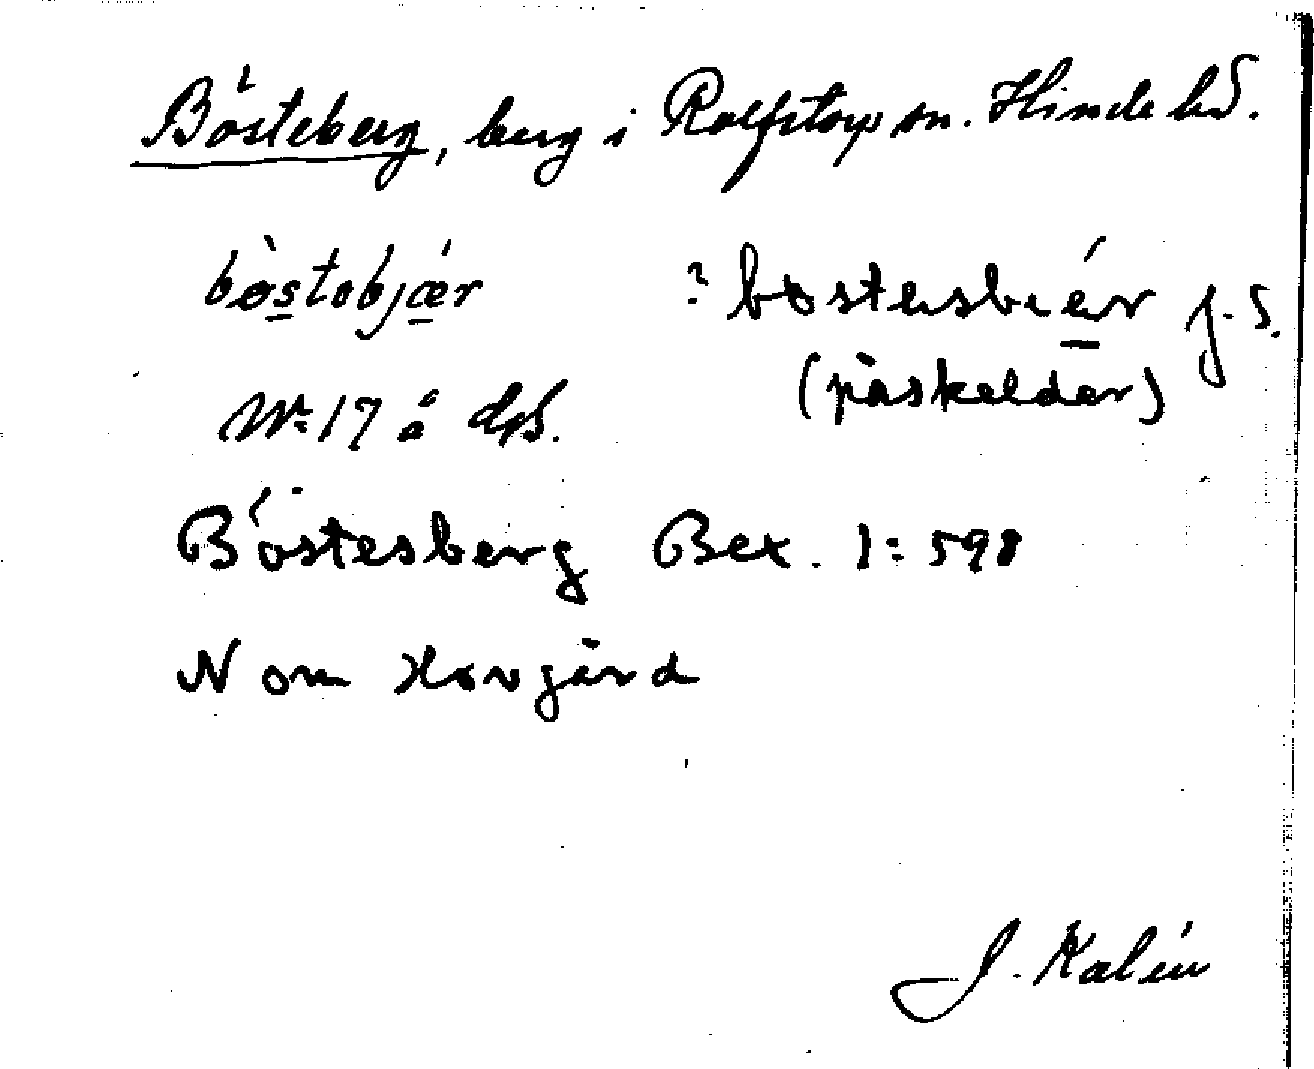 Bösteberg, berg i Rolfstorp sn. Himle hd.
bøstobjær ? bøstesbiér J. S.
(påskeldar)
Nr 17 å
Böstesberg Bex. 1:598
N om Hovgård
J. Kalén